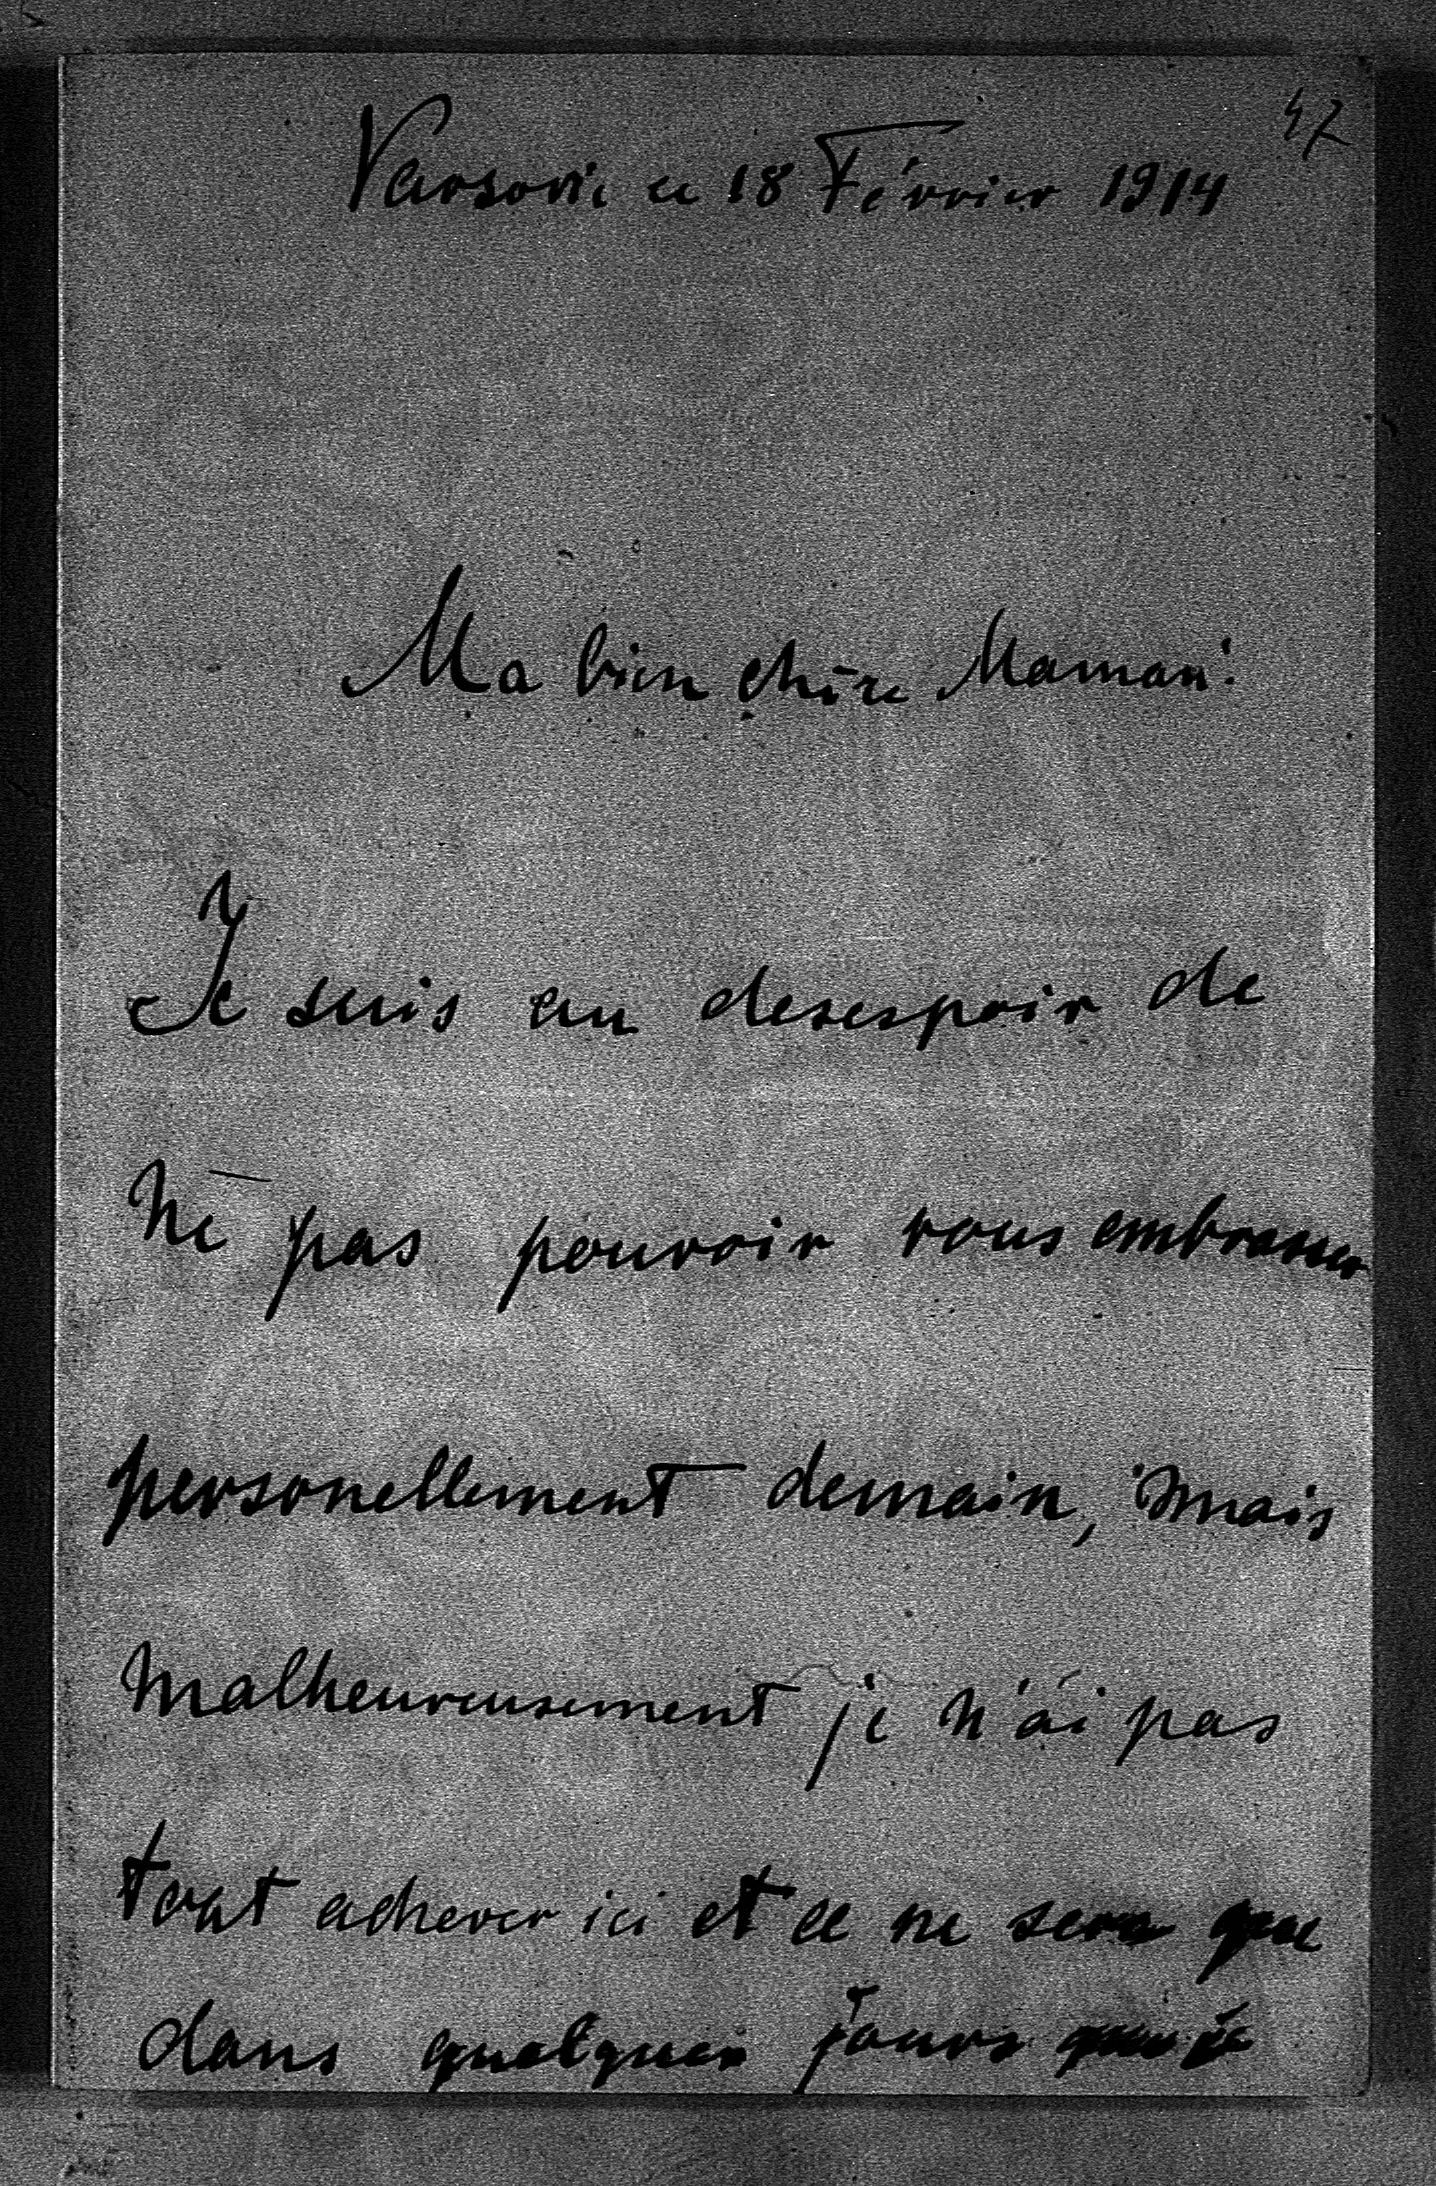 47
Varsovie ce 18 Février 1914
Ma bien chère Maman!
Je suis au desespoir de
ne pas pouvoir vous embrasser
personellement demain, mais
malheureusement je n'ai pas
tout achever ici et ce ne sera que
dans quelques jours que je